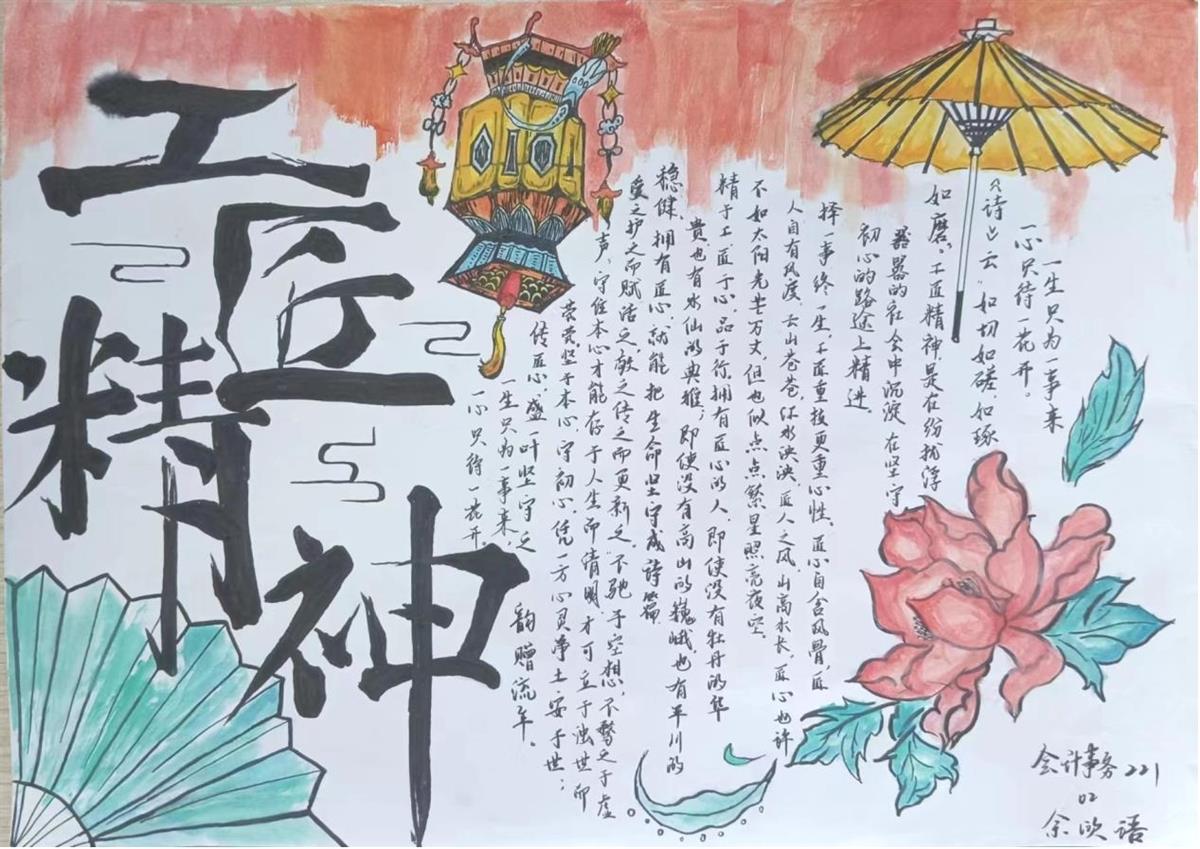 工匠
精神
一生只为一事来
一心只待一花开。
《诗》云“如切如磋,如琢
如磨。”工匠精神,是在纷扰浮
嚣的社会中沉淀,在坚守
初心的路途上精进。
择一事,终一生。工匠重技更重心性。匠心自含风骨,匠
人自有风度。云山苍苍,怀水泱泱,匠人之风,山高水长。匠心也许
不如太阳光芒万丈,但也似点点繁星照亮夜空。
精于工,匠于心,品于行。拥有匠心的人,即使没有牡丹的华
贵也有水仙的典雅;即使没有高山的巍峨也有平川的
稳健。拥有匠心,就能把生命坚守成诗篇
爱之护之而赋活之,献之传之而更新之。不驰于空想,不骛之于虚
声,守住本心才能存于人生而清明,才可立于浊世而
茕茕。坚于本心,守初心,凭一方心灵净土安于世;
传匠心,盛一叶坚守之
韵赠流年。
一生只为一事来
一心只待一花开。
会计事务221
02
余欣语